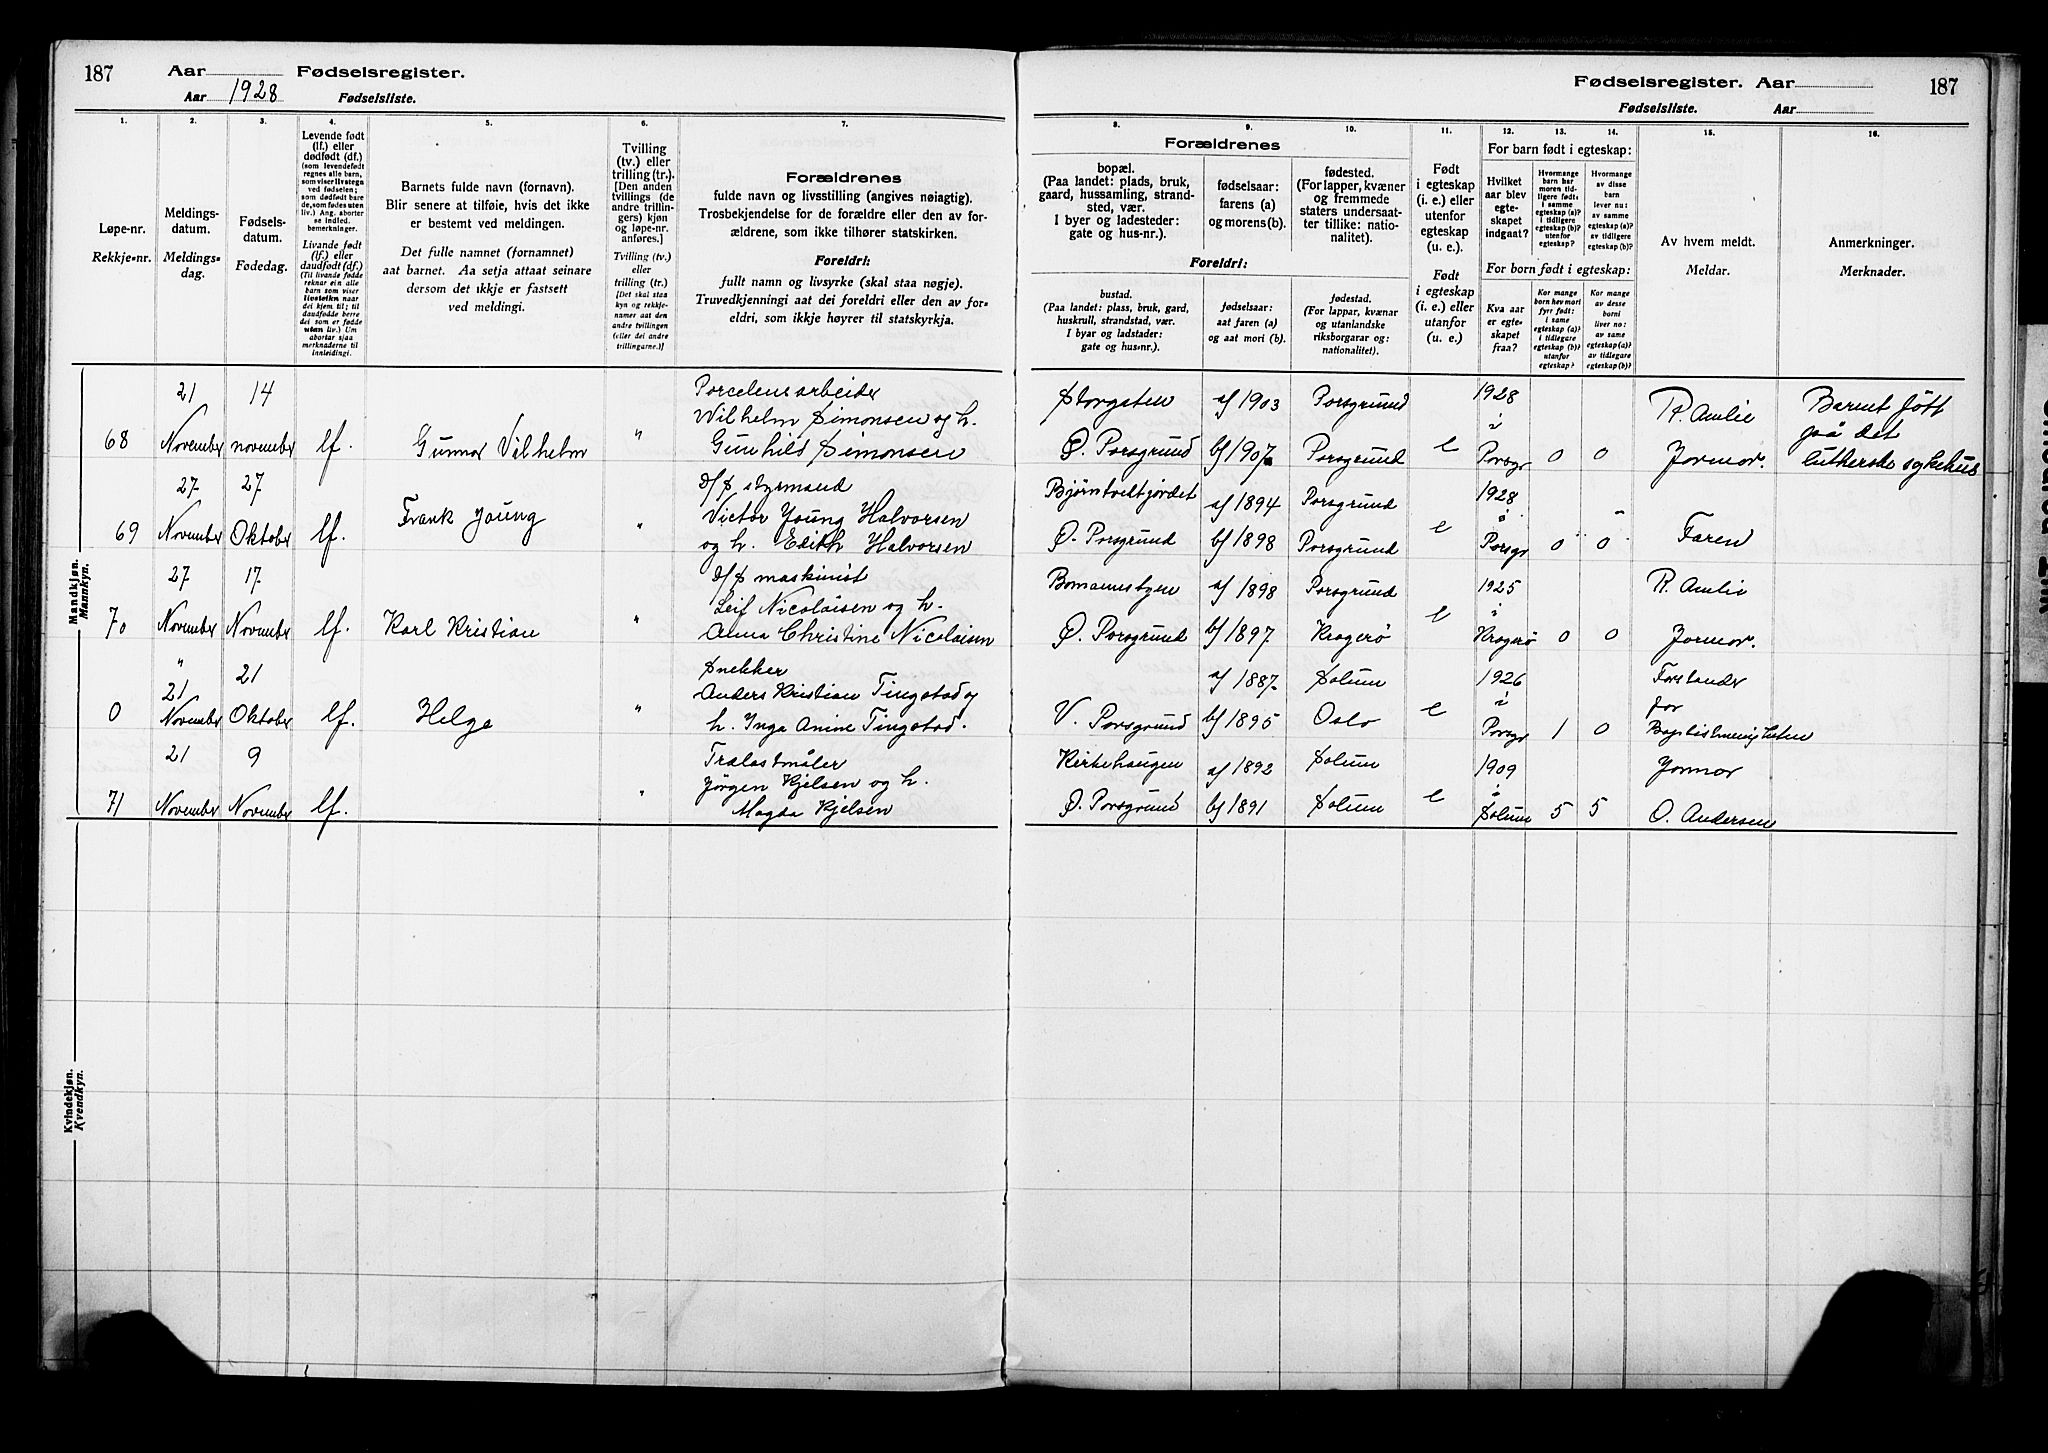 187 Aar Fødselsregister.
Aar 1928 Fødselsliste.
Fødselsregister. Aar 187
Fødselsliste. Aar
1. 2. 3. 4. 5. 6. 7.
Løpe-nr.
Rekkje-nr.
Meldings-
datum.
Meldings-
dag.
Fødsels-
datum.
Fødedag.
Levende født
(lf.) eller
dødfødt (df.)
(som levendefødt
regnes alle barn,
som viser livstegn
ved fødselen;
som dødfødt bare
de, som fødes uten
liv.) Ang. aborter
se indled.
bemerkninger.
Livande født
(lf.) eller
daudfødt (df.)
(Til livande fødde
reknar ein alle
barn som viser
livsteikn naar
dei kjem til; til
daudfødde berre
dei som er fødde
utan liv.) Um
abortar sjaa
merknaderne til
innleidingi.
Barnets fulde navn (fornavn).
Blir senere at tilføie, hvis det ikke
er bestemt ved meldingen.
Det fulle namnet (fornamnet)
aat barnet. Aa setja attaat seinare
dersom det ikkje er fastsett
ved meldingi.
Tvilling
(tv.) eller
trilling (tr.).
[Den anden
tvillings (de
andre trillin-
gers) kjøn
og løpe-nr.
anføres.]
Tvilling (tv.)
eller
trilling (tr.)
[Det skal staa
kyn og rekkje-
numer aat den
andre tvillingen
(eller dei andre
trillingarne.)]
Forældrenes
fulde navn og livsstilling (angives nøiagtig).
Trosbekjendelse for de forældre eller den av for-
ældrene, som ikke tilhører statskirken.
Foreldri:
fullt namn og livsyrke (skal staa nøgje).
Truvedkjenningi aat dei foreldri eller den av for-
eldri, som ikkje høyrer til statskyrkja.
8. 9. 10. 11. 12. 13. 14. 15. 16.
Forældrenes
bopæl.
(Paa landet: plads, bruk,
gaard, hussamling, strand-
sted, vær.
I byer og ladesteder:
gate og hus-nr.).
fødselsaar:
farens (a)
og morens (b).
fødested.
(For lapper, kvæner
og fremmede
staters undersaat-
ter tillike: natio-
nalitet).
Foreldri:
bustad.
(Paa landet: plass, bruk, gard,
huskrull, strandstad, vær.
I byar og ladstader:
gate og hus-nr.).
fødselsaar:
aat faren (a)
og aat mori (b).
fødestad.
(For lappar, kvænar
og utanlandske
riksborgarar og:
nationalitet).
Født
i egteskap
(i. e.) eller
utenfor
egteskap
(u. e.).
Født
i egteskap
(i. e.) eller
utanfor
(u. e.)
For barn født i egteskap:
Hvilket
aar blev
egte-
skapet
indgaat?
Hvormange
barn har
moren tid-
ligere født:
i samme
egteskap (a)?
i tidligere
egteskap (b)?
utenfor
egteskap?
Hvormange
av disse
barn
lever nu:
av samme
egteskap (a)?
av tidligere
egteskap (b)?
For born født i egteskap:
Kva aar
er egte-
skapet
fraa?
Kor mange
born hev mori
fyrr født:
i same
egteskap (a)?
i tidlegare
egteskap (b)?
utanfor
egteskap?
Kor mange
av desse
borni
liver no:
av same
egteskap (a)?
av tidlegare
egteskap (b)?
Av hvem meldt.
Meldar.
Anmerkninger.
Merknader.
Mandkjøn.
Mannkyn.
21 14 Porcelensarbeider Storgaten af 1903 Porsgrund 1928 Barnet født
Wilhelm Simonsen og h. i R. Amlie på det
68 November november lf. Gunnar Vilhelm " Gunhild Simonsen Ø. Porsgrund bf 1907 Porsgrund e Porsgr 0 0 Jormor. lutherske sykehus
27 27 D/S styrmand Bjørntvedtjordet af 1894 Porsgrund 1928
Frank Young Victor Young Halvorsen i
69 November Oktober lf. " og h. Edith Halvorsen Ø. Porsgrund bf 1898 Porsgrund e Porsgr 0 0 Faren
27 17 D/S maskinist af 1898 Porsgrund 1925 R. Amlie
Leif Nicolaisen og h. i
70 November November lf. Karl Kristian " Anna Christine Nicolaisen Ø. Porsgrund bf 1897 Kragerø e Kragerø 0 0 Jormor.
" 21 Snekker af 1887 Solum 1926 Forstander
21 Anders Kristian Tingstad og i for
0 November Oktober lf. Helge " h. Inga Anine Tingstad. V. Porsgrund bf 1895 Oslo e Porsgr 1 0 Baptistmenigheten
21 9 Trælastmåler Kirkehaugen af 1892 Solum 1909 Jormor
Jørgen Kjelsen og h. i
71 November November lf. " Magda Kjelsen Ø. Porsgrund bf 1891 Solum e Solum 5 5 O. Andersen
Kvindekjøn.
Kvendkyn.